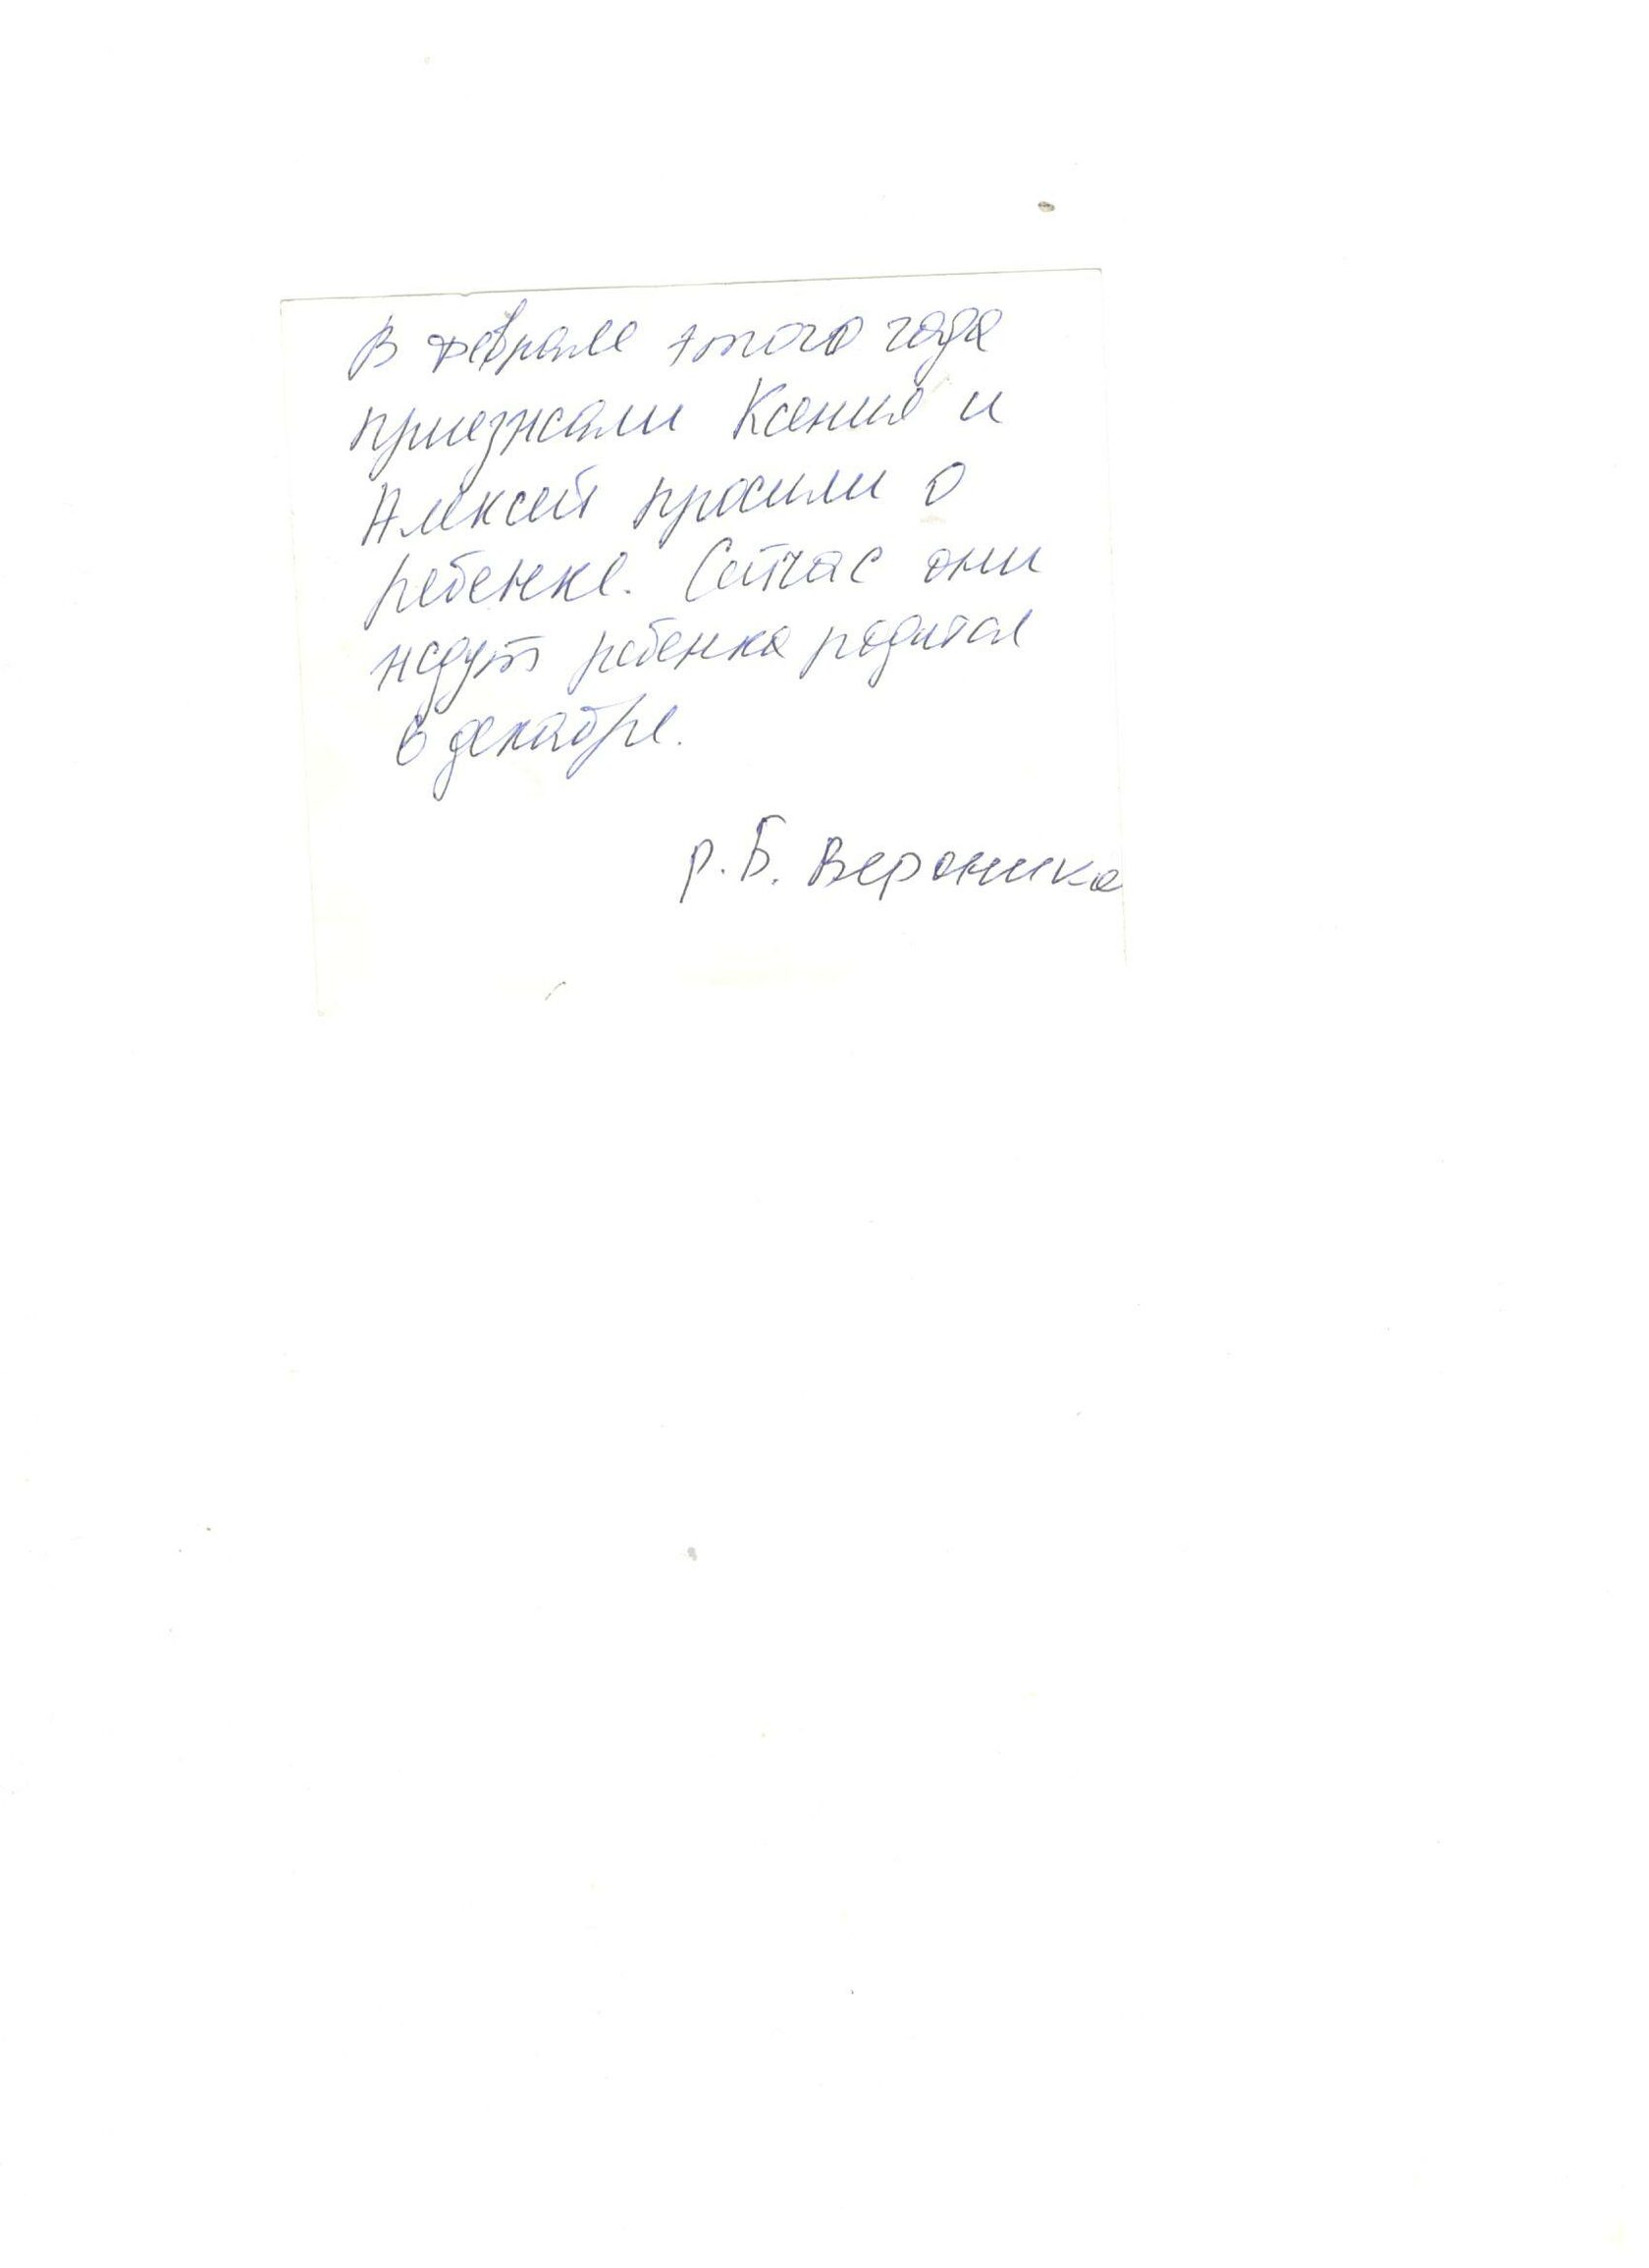 В феврале этого года
приезжали Ксения и
Алексей просили о
ребенке. Сейчас они
ждут ребенка родится
в декабре.
р. Б. Вероника